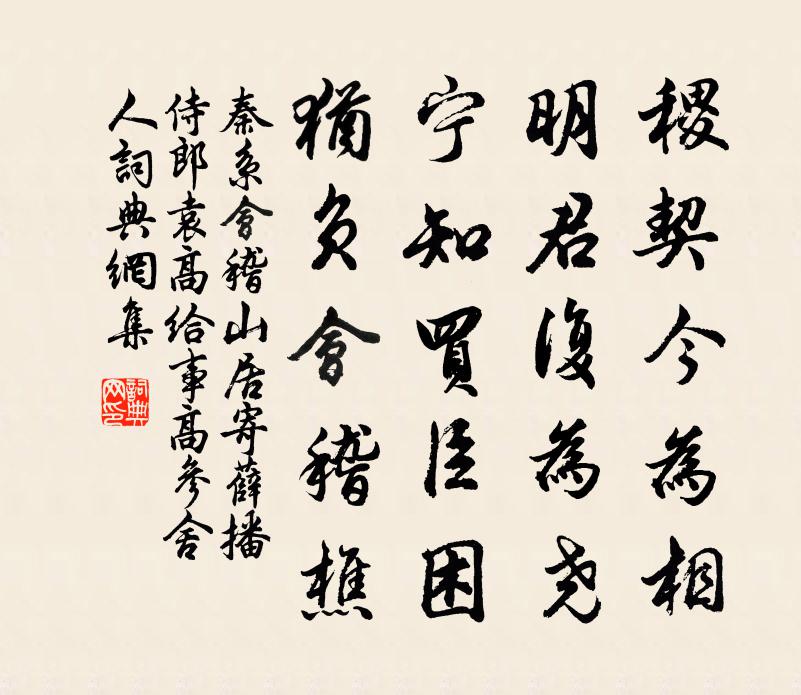 稷契今為相
明君復為尧
宁知買臣困
猶負會稽樵
秦系會稽山居寄薛播
侍郎袁高給事高參舍
人詞典網集
詞典
网印